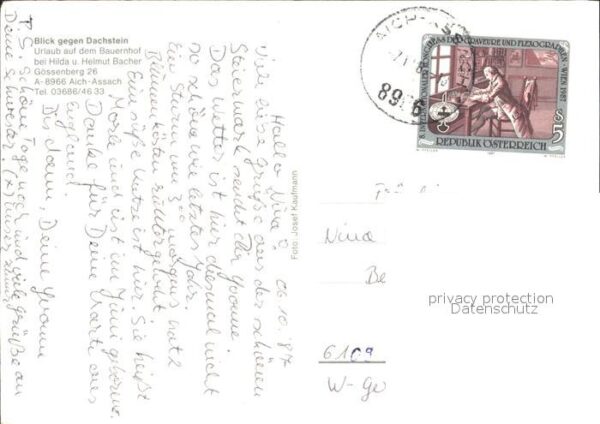 Blick gegen Dachstein
Urlaub auf dem Bauernhof
bei Hilda u. Helmut Bacher
Gössenberg 26
A-8966 Aich-Assach
Tel. 03686/46 33
06.10.87
Hallo Nina!
Viele liebe Grüße aus der schönen
Steiermark sendet Dir Yvonne.
Das Wetter ist hier diesmal nicht
so schön wie letztes Jahr.
Ein Sturm um 3⁰⁰ morgens hat
Blumenkästen runtergeweht
Eine süße Katze ist hier. Sie heißt
und ist im Juni geboren.
Danke für Deine Karte aus
England.
Bis dann, Deine Yvonne
P.S. Schöne Tage noch und viele Grüße an
Deine Schwester! (*)
Foto: Josef Kaufmann
AICH-
8. INTERNATIONALER KONGRESS DER GRAVEURE UND FLEXOGRAFEN · WIEN 1987
S 5
REPUBLIK ÖSTERREICH
Nina
Be
privacy protection
Datenschutz
6109
W-Ge